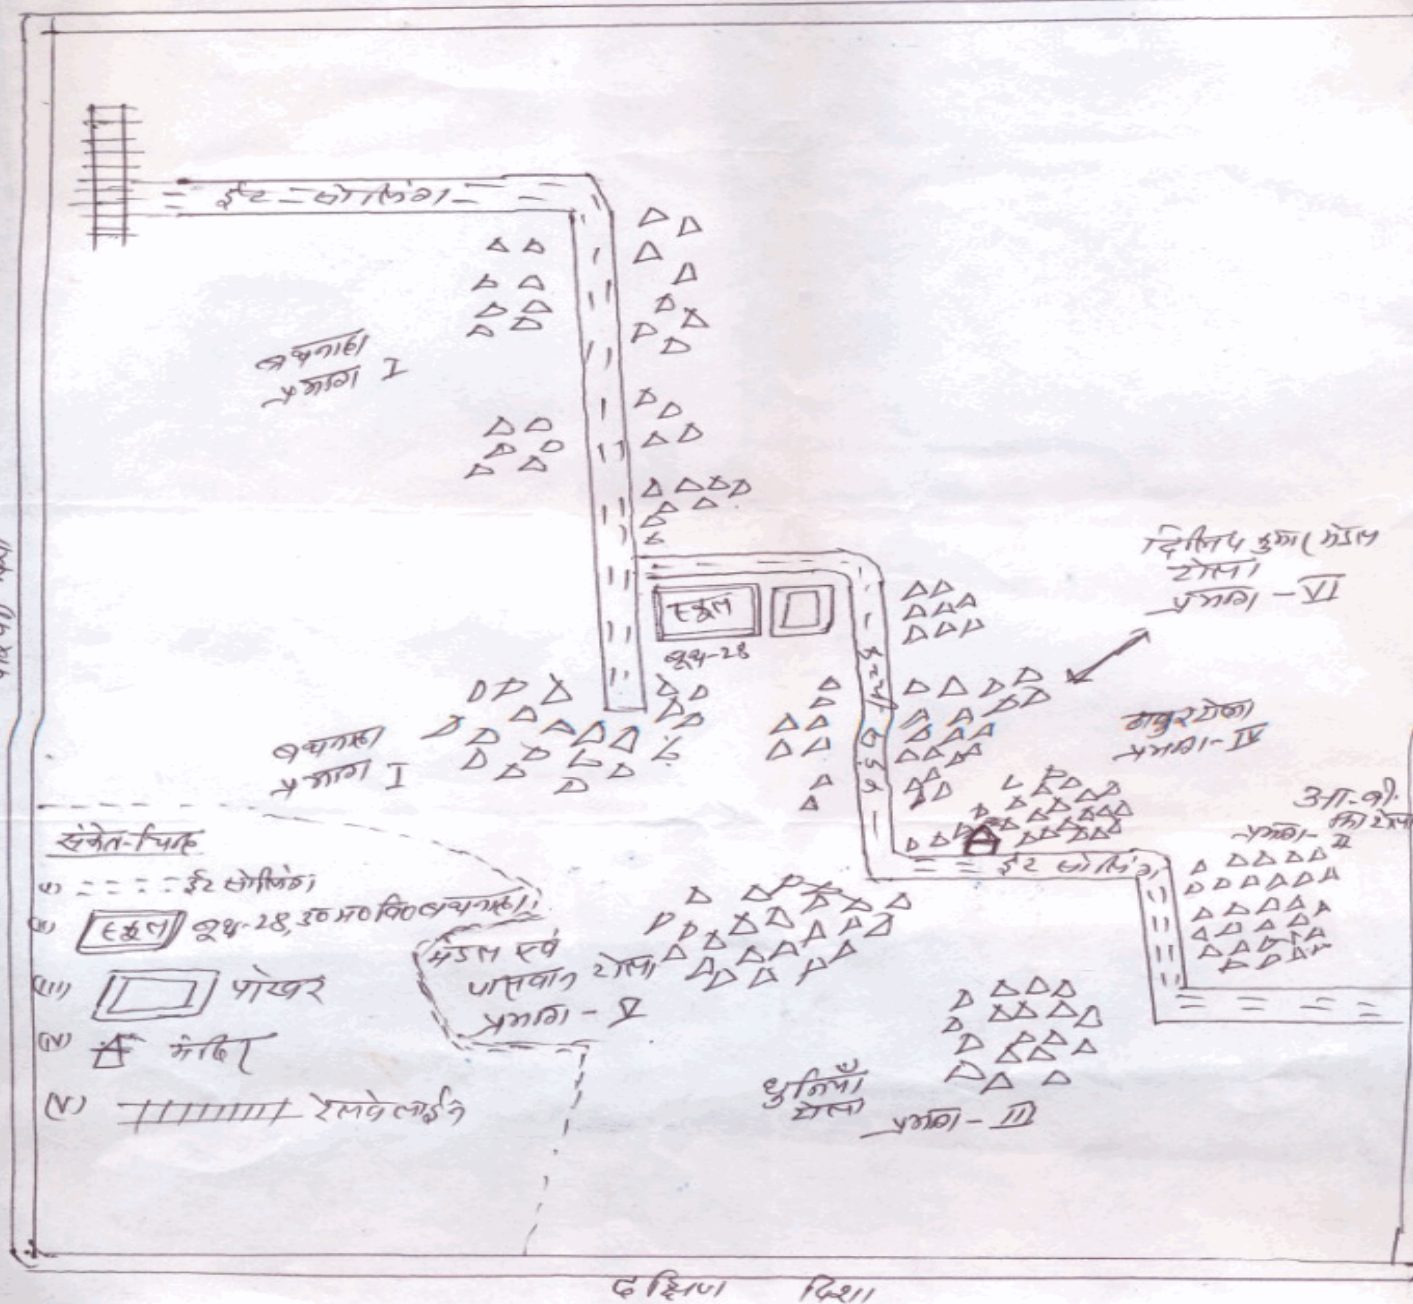 ईट सोलिंग
बथनाहा
प्रभाग I
दिलिप कुमार मंडल
टोला
प्रभाग - VI
स्कूल
बूथ-28
ठाकुर टोला
प्रभाग - IV
बथनाहा
प्रभाग I
प्रभाग - II
ईट सोलिंग
संकेत-चिन्ह
ईट सोलिंग
(II) स्कूल बूथ-28, उ० म० वि० बथनाहा
(III) पोखर
(IV) मंदिर
(V) रेलवे लाईन
मंडल एवं
पासवान टोला
प्रभाग - V
धुनियाँ
टोला
प्रभाग - III
दक्षिण दिशा